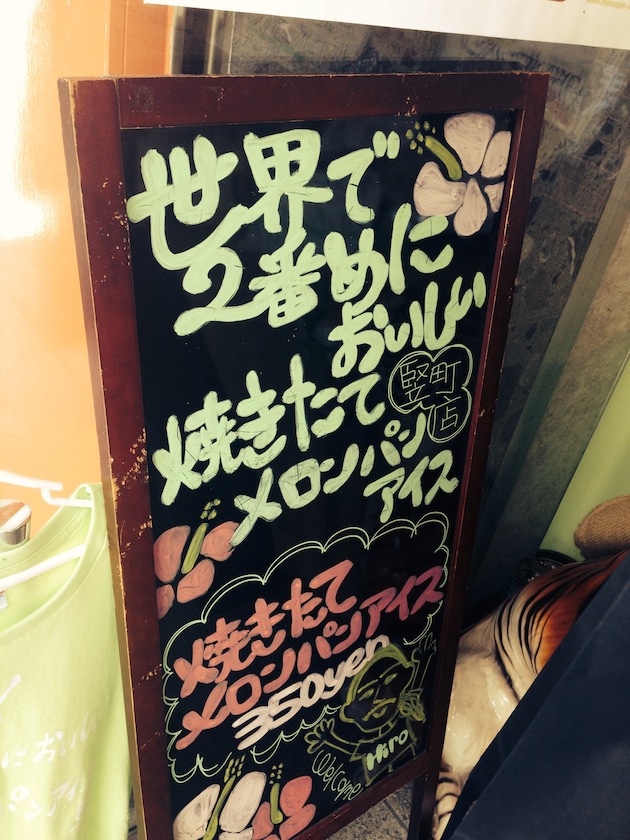 世界で
2番めに
おいしい
焼きたて
メロンパン
アイス
竪町
店
焼きたて
メロンパンアイス
350yen
Hiro
Welcome
においし
パンアイ